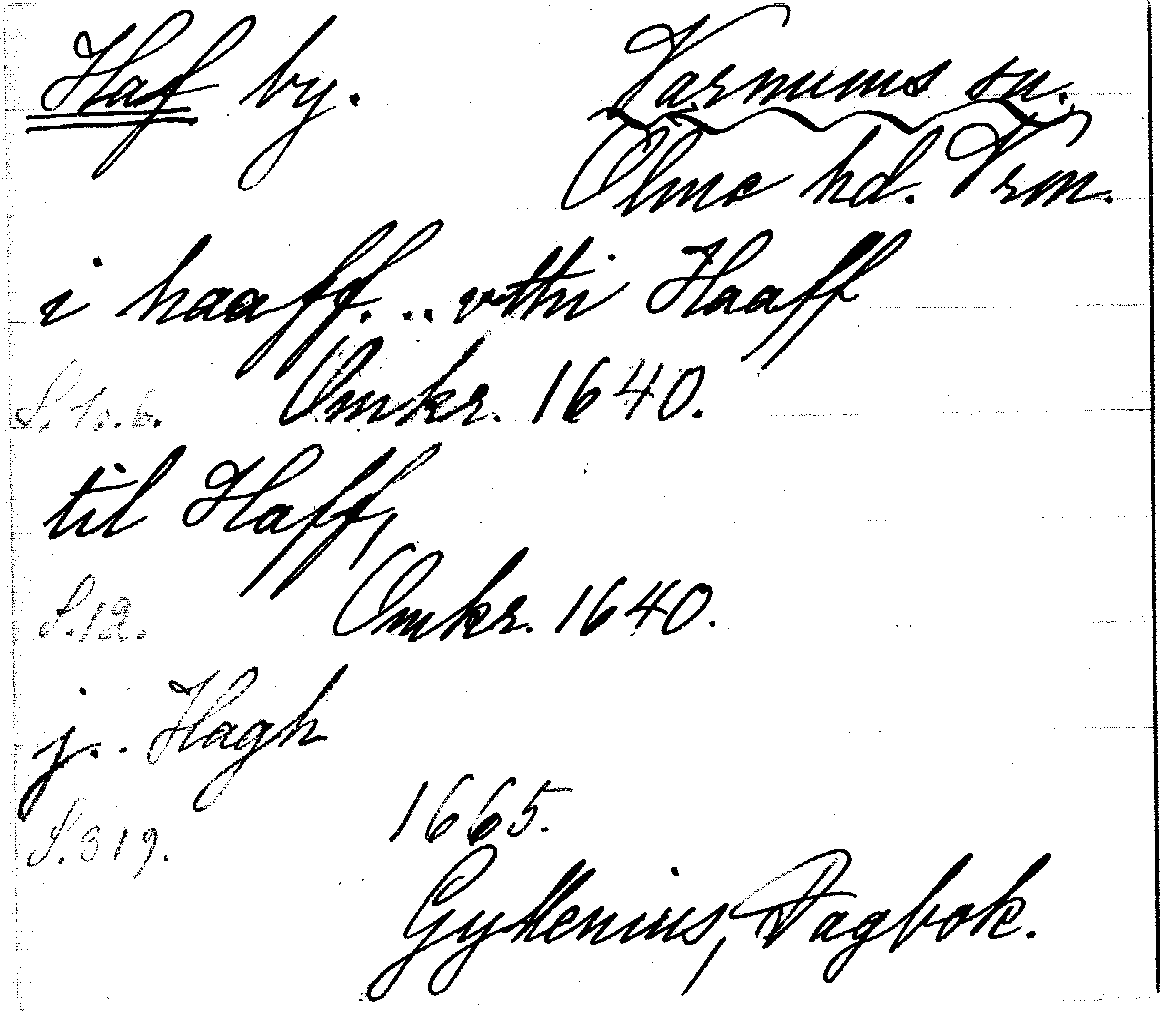 Haf by. Varnums sn.
Ölme hd. Vrm.
i haaff. .. vthi Haaff
S. 10. 6. Omkr. 1640.
til Haff,
S. 12. Omkr. 1640.
j. . Hagh
1665.
S. 319.
Gyllenius, Dagbok.